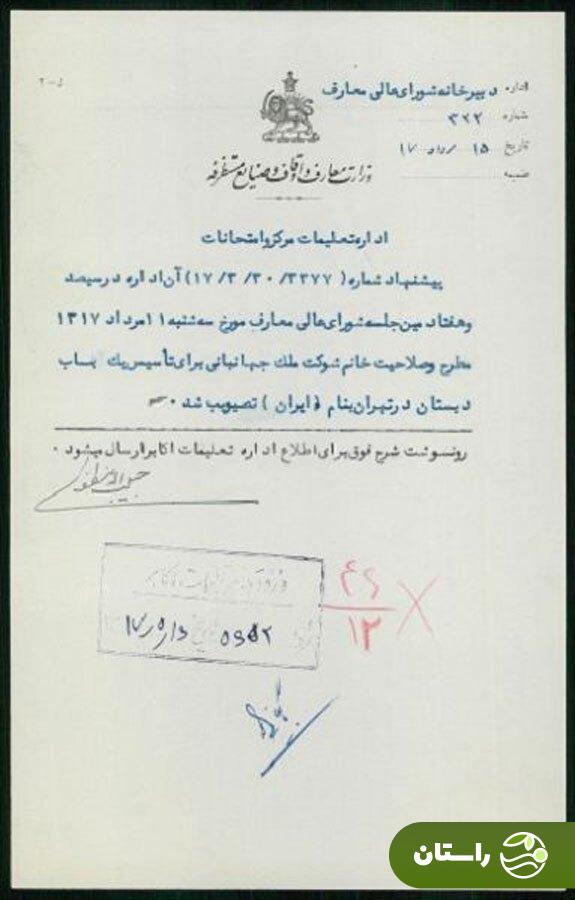 اداره دبیرخانه شورای عالی معارف
شماره ۳۲۲
تاریخ ۱۵ مرداد ۱۷
ضمیمه
وزارت معارف و اوقاف و صنایع مستظرفه
اداره تعلیمات مرکز و امتحانات
پیشنهاد شماره (۳۳۷۷/ ۳۰/ ۳/ ۱۷) آن اداره در سیصد
و هفتاد مین جلسه شورای عالی معارف مورخ سه شنبه ۱۱ مرداد ۱۳۱۷
مطرح و صلاحیت خانم شوکت ملک جهانبانی برای تأسیس یک باب
دبستان در تهران بنام (ایران) تصویب شد ۰
رونوشت شرح فوق برای اطلاع اداره تعلیمات اکابر ارسال میشود ۰
۴۶
۱۲
راستان